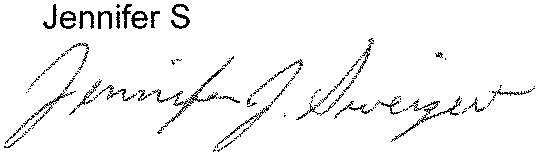 Jennifer S
Jennifer J. Sweigert